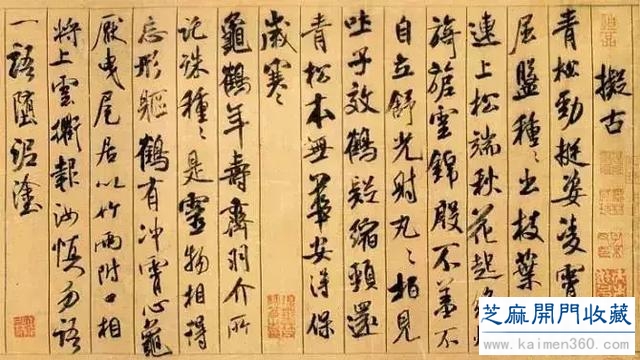 擬古
青松勁挺姿凌霄
屈盤種〻出枝葉
連上松端秋花起
旖旎雲錦殷不羞不
自立舒光射丸〻柏見
吐子效鶴疑縮頸還
青松本無華安得保
歲寒
龜鶴年壽齊羽介所
託殊種〻是靈物相得
忘形軀鶴有沖霄心龜
厭曳尾居以竹兩附口相
將上雲衢報汝慎勿語
一語墮泥塗
芝麻開門收藏
www.kaimen360.com